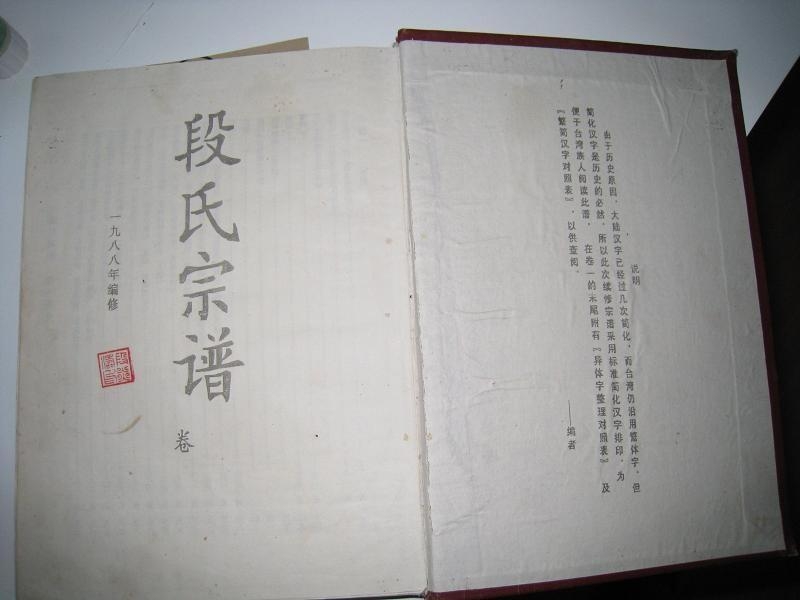 说明
由于历史原因，大陆汉字已经过几次简化，而台湾仍沿用繁体字，但
简化汉字是历史的必然，所以此次续修宗谱采用标准简化汉字排印，为
便于台湾族人阅读此谱，在卷一的末尾附有《异体字整理对照表》及
《繁简汉字对照表》，以供查阅。
——编者
段氏宗谱
卷
一九八八年编修